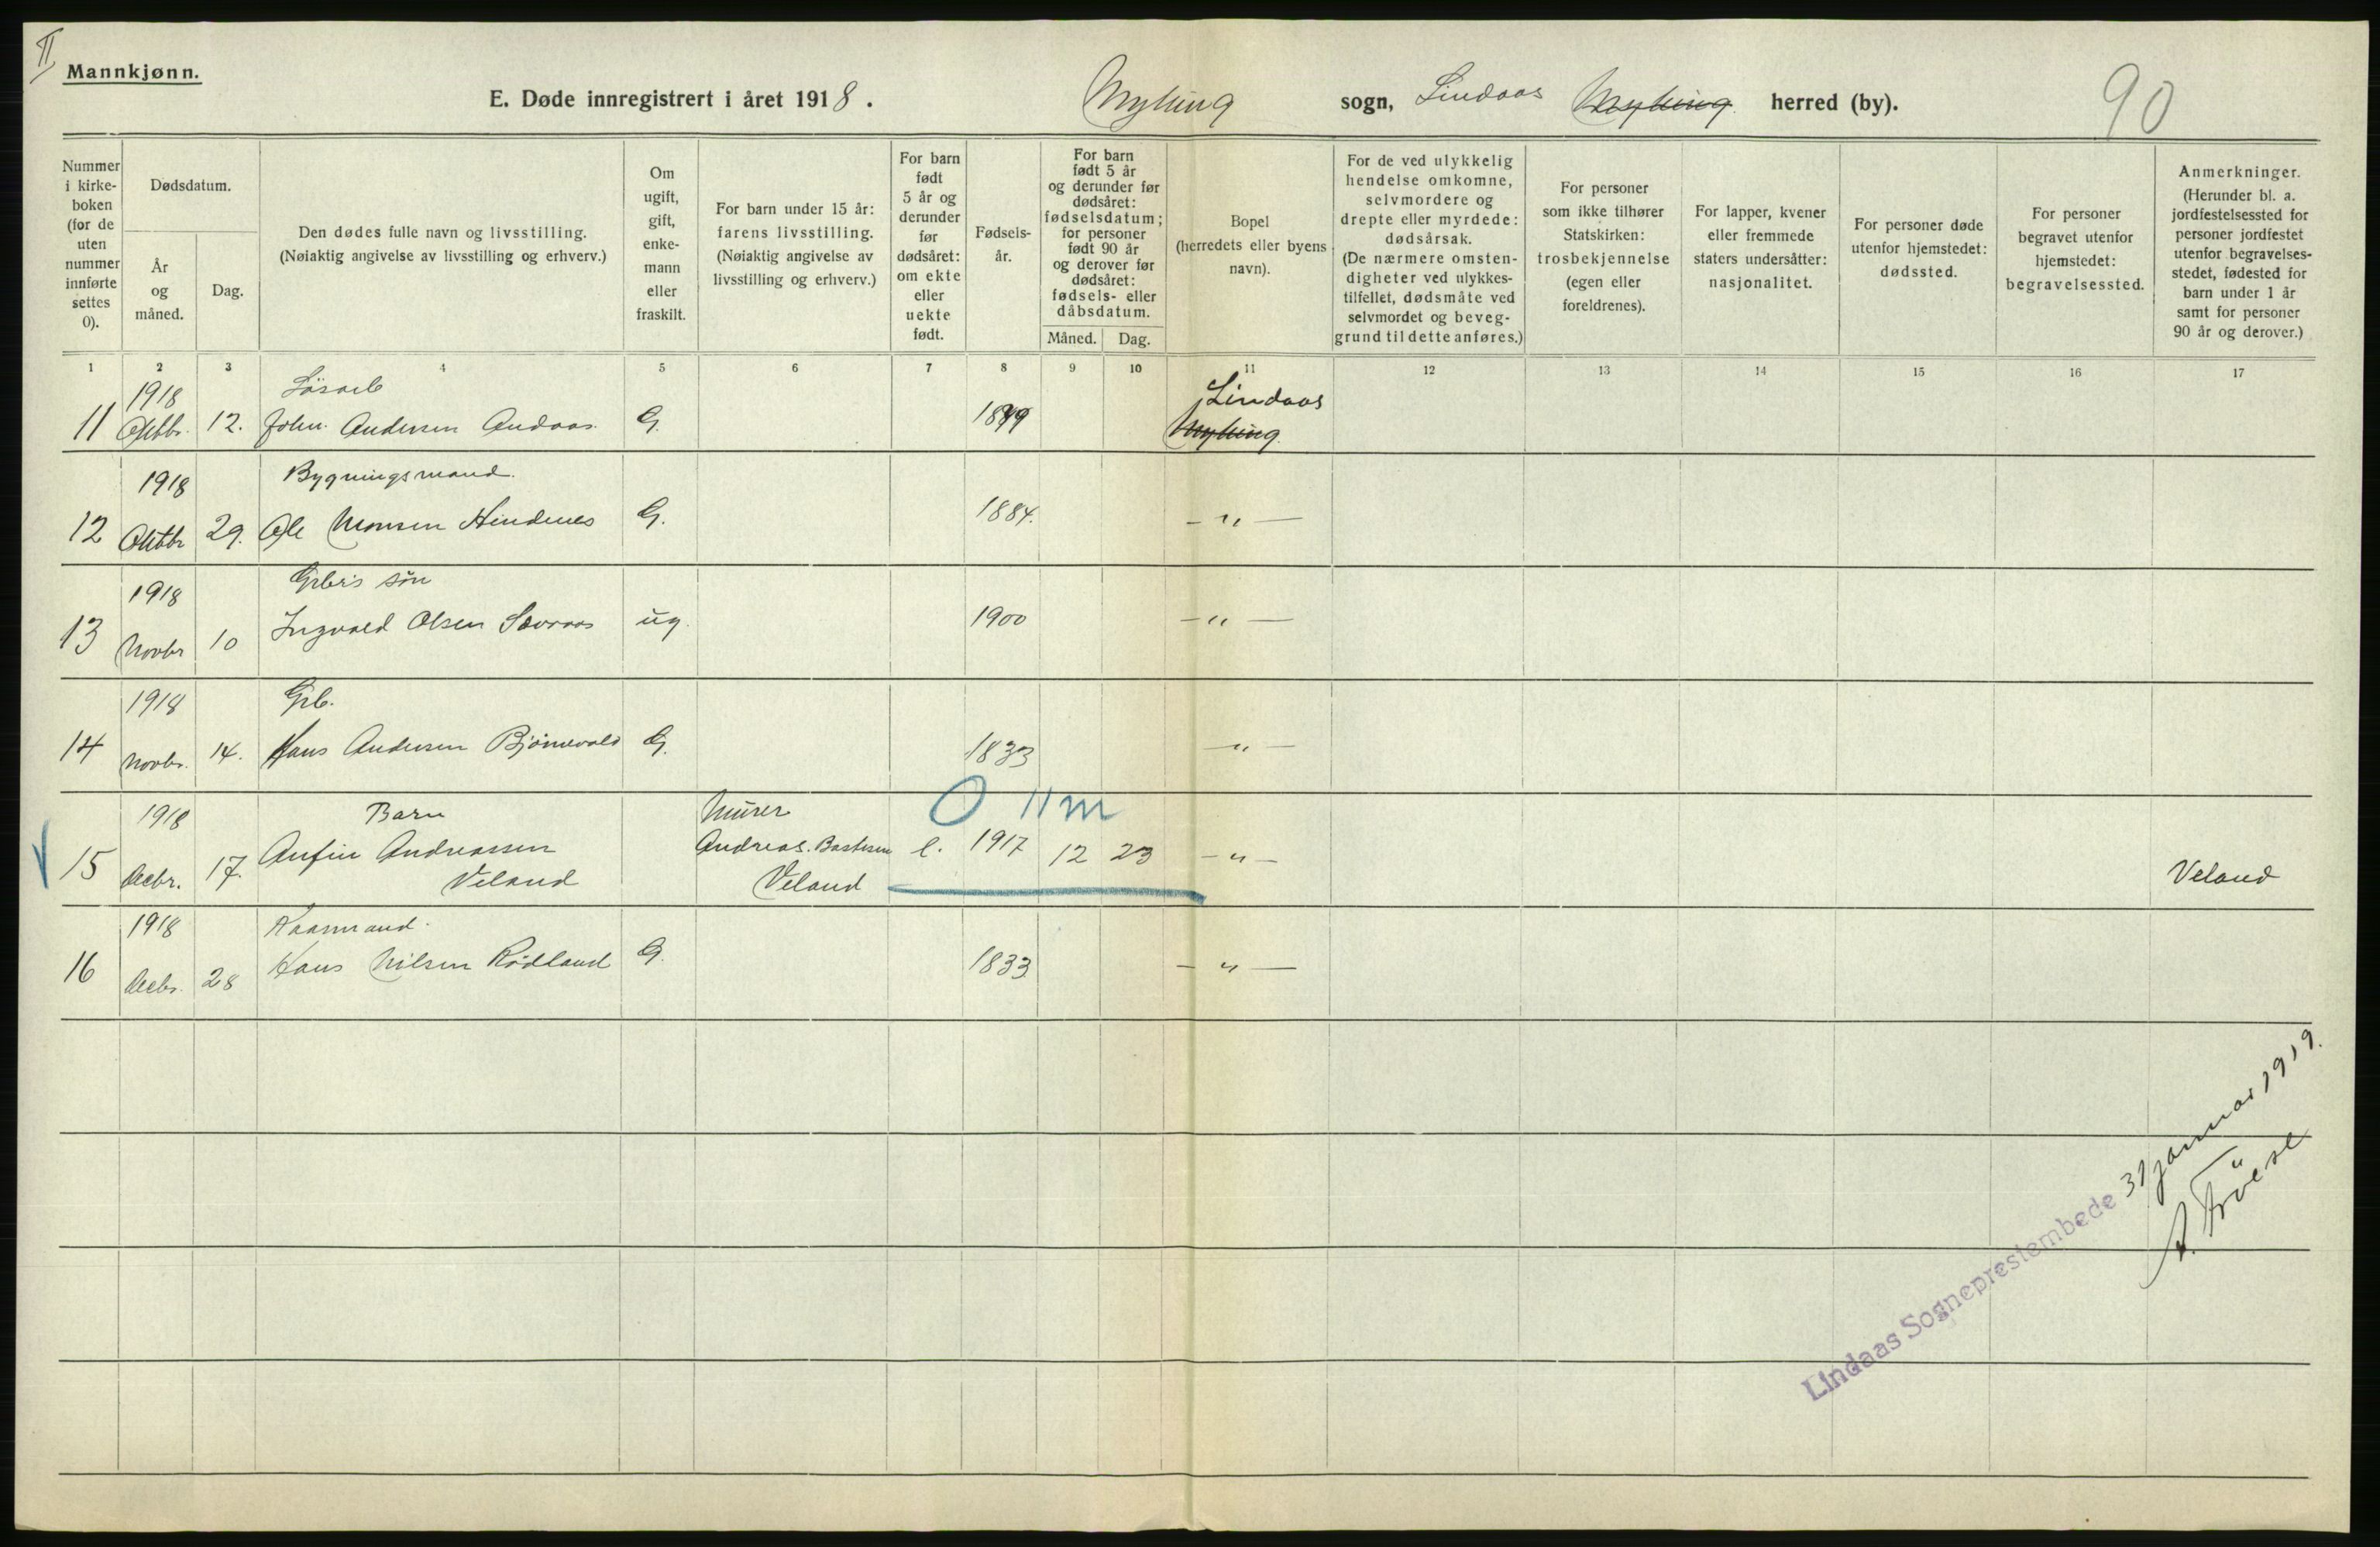 II
Mannkjønn.
E. Døde innregistrert i året 1918. Myking sogn, Lindaas Myking herred (by).
90
Nummer i kirkeboken (for de uten nummer innførte settes 0).
Dødsdatum.
År og måned.
Dag.
Den dødes fulle navn og livsstilling.
(Nøiaktig angivelse av livsstilling og erhverv.)
Om ugift, gift, enkemann eller fraskilt.
For barn under 15 år: farens livsstilling.
(Nøiaktig angivelse av livsstilling og erhverv.)
For barn født 5 år og derunder før dødsåret: om ekte eller uekte født.
Fødselsår.
For barn født 5 år og derunder før dødsåret: fødselsdatum; for personer født 90 år og derover før dødsåret: fødsels- eller dåbsdatum.
Måned.
Dag.
Bopel (herredets eller byens navn).
For de ved ulykkelig hendelse omkomne, selvmordere og drepte eller myrdede: dødsårsak.
(De nærmere omstendigheter ved ulykkestilfellet, dødsmåte ved selvmordet og beveggrund til dette anføres.)
For personer som ikke tilhører Statskirken: trosbekjennelse (egen eller foreldrenes).
For lapper, kvener eller fremmede staters undersåtter: nasjonalitet.
For personer døde utenfor hjemstedet: dødssted.
For personer begravet utenfor hjemstedet: begravelsessted.
Anmerkninger.
(Herunder bl. a. jordfestelsessted for personer jordfestet utenfor begravelsesstedet, fødested for barn under 1 år samt for personer 90 år og derover.)
1 2 3 4 5 6 7 8 9 10 11 12 13 14 15 16 17
1918 Løsarb Lindaas
11 Oktbr. 12. John Andersen Andaas. G. 1849 Myking
1918 Bygningsmand.
12 Oktbr 29. Ole Monsen Hindenes G. 1884. - " -
1918 Grbr's søn
13 Novbr 10 Ingvald Olsen Sævraas ug. 1900 - " -
1918 Grb.
14 Novbr. 14. Hans Andersen Bjørnevold G. 1833 - " -
1918 Barn Murer 0 11 m
15 Decbr. 17. Anfin Andreassen Andreas Bastesen e. 1917 12 23 - " - Veland
Veland Veland
1918 Kaarmand.
16 Decbr. 28 Hans Nilsen Rødland G. 1833 - " -
Lindaas Sogneprestembede 31 januar 1919.